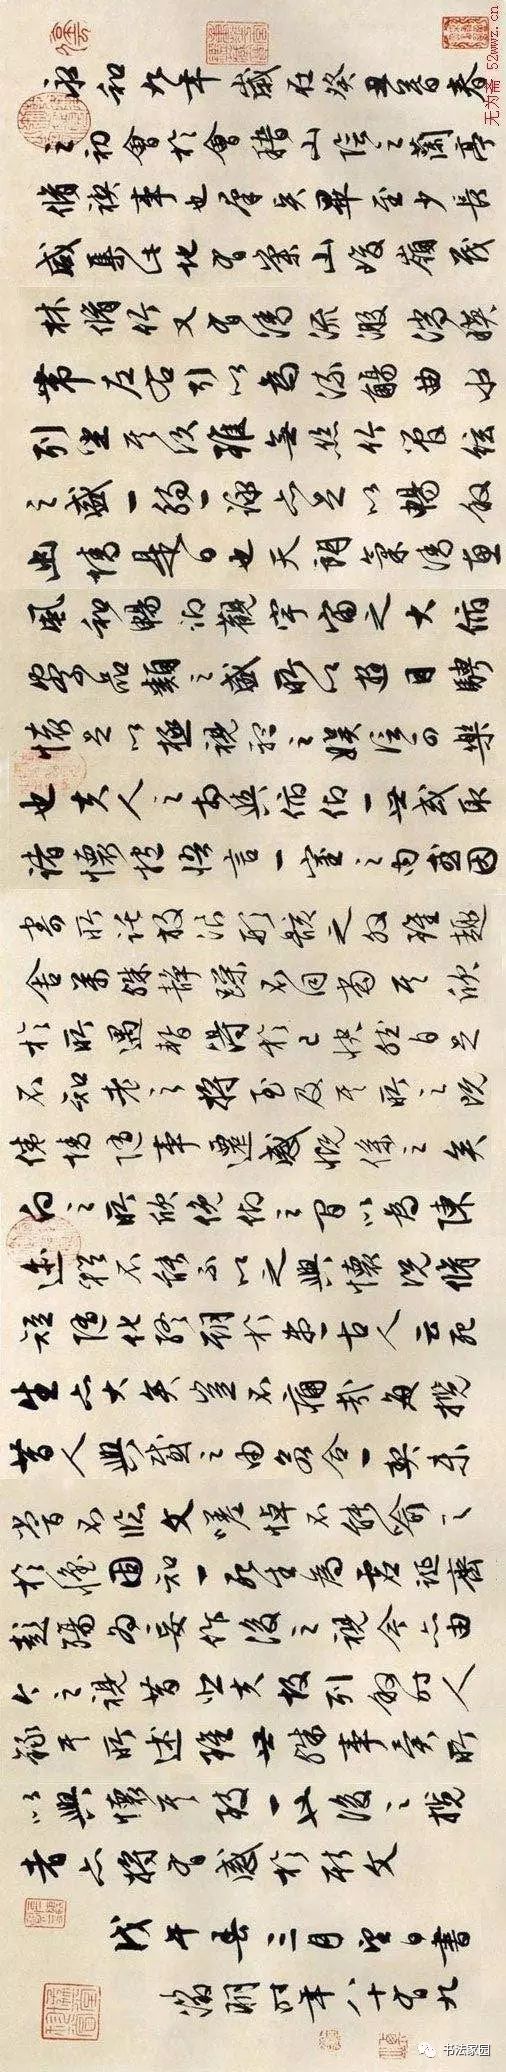 无为斋 52wwz.cn
永和九年歲在癸丑暮春
之初會於會稽山陰之蘭亭
脩禊事也群賢畢至少長
咸集此地有崇山峻嶺茂
林脩竹又有清流激湍暎
帶左右引以為流觴曲水
列坐其次雖無絲竹管絃
之盛一觴一詠亦足以暢敘
幽情是日也天朗氣清惠
風和暢仰觀宇宙之大俯
察品類之盛所以遊目騁
懷足以極視聽之娛信可樂
也夫人之相與俯仰一世或取
諸懷抱悟言一室之內或因
寄所託放浪形骸之外雖趣
舍萬殊靜躁不同當其欣
於所遇暫得於己快然自足
不知老之將至及其所之既
倦情隨事遷感慨係之矣
向之所欣俛仰之間以為陳
迹猶不能不以之興懷況脩
短隨化終期於盡古人云死
生亦大矣豈不痛哉每攬
昔人興感之由若合一契未
嘗不臨文嗟悼不能喻之
於懷固知一死生為虛誕齊
彭殤為妄作後之視今亦由
今之視昔悲夫故列敘時人
錄其所述雖世殊事異所
以興懷其致一也後之攬
者亦將有感於斯文
戊午春三月望日書
徵明時年八十有九
书法家园